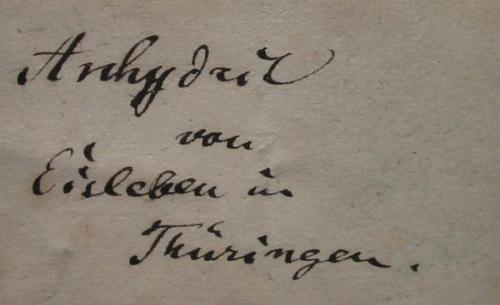 Anhydrit
von
Eisleben in
Thüringen.